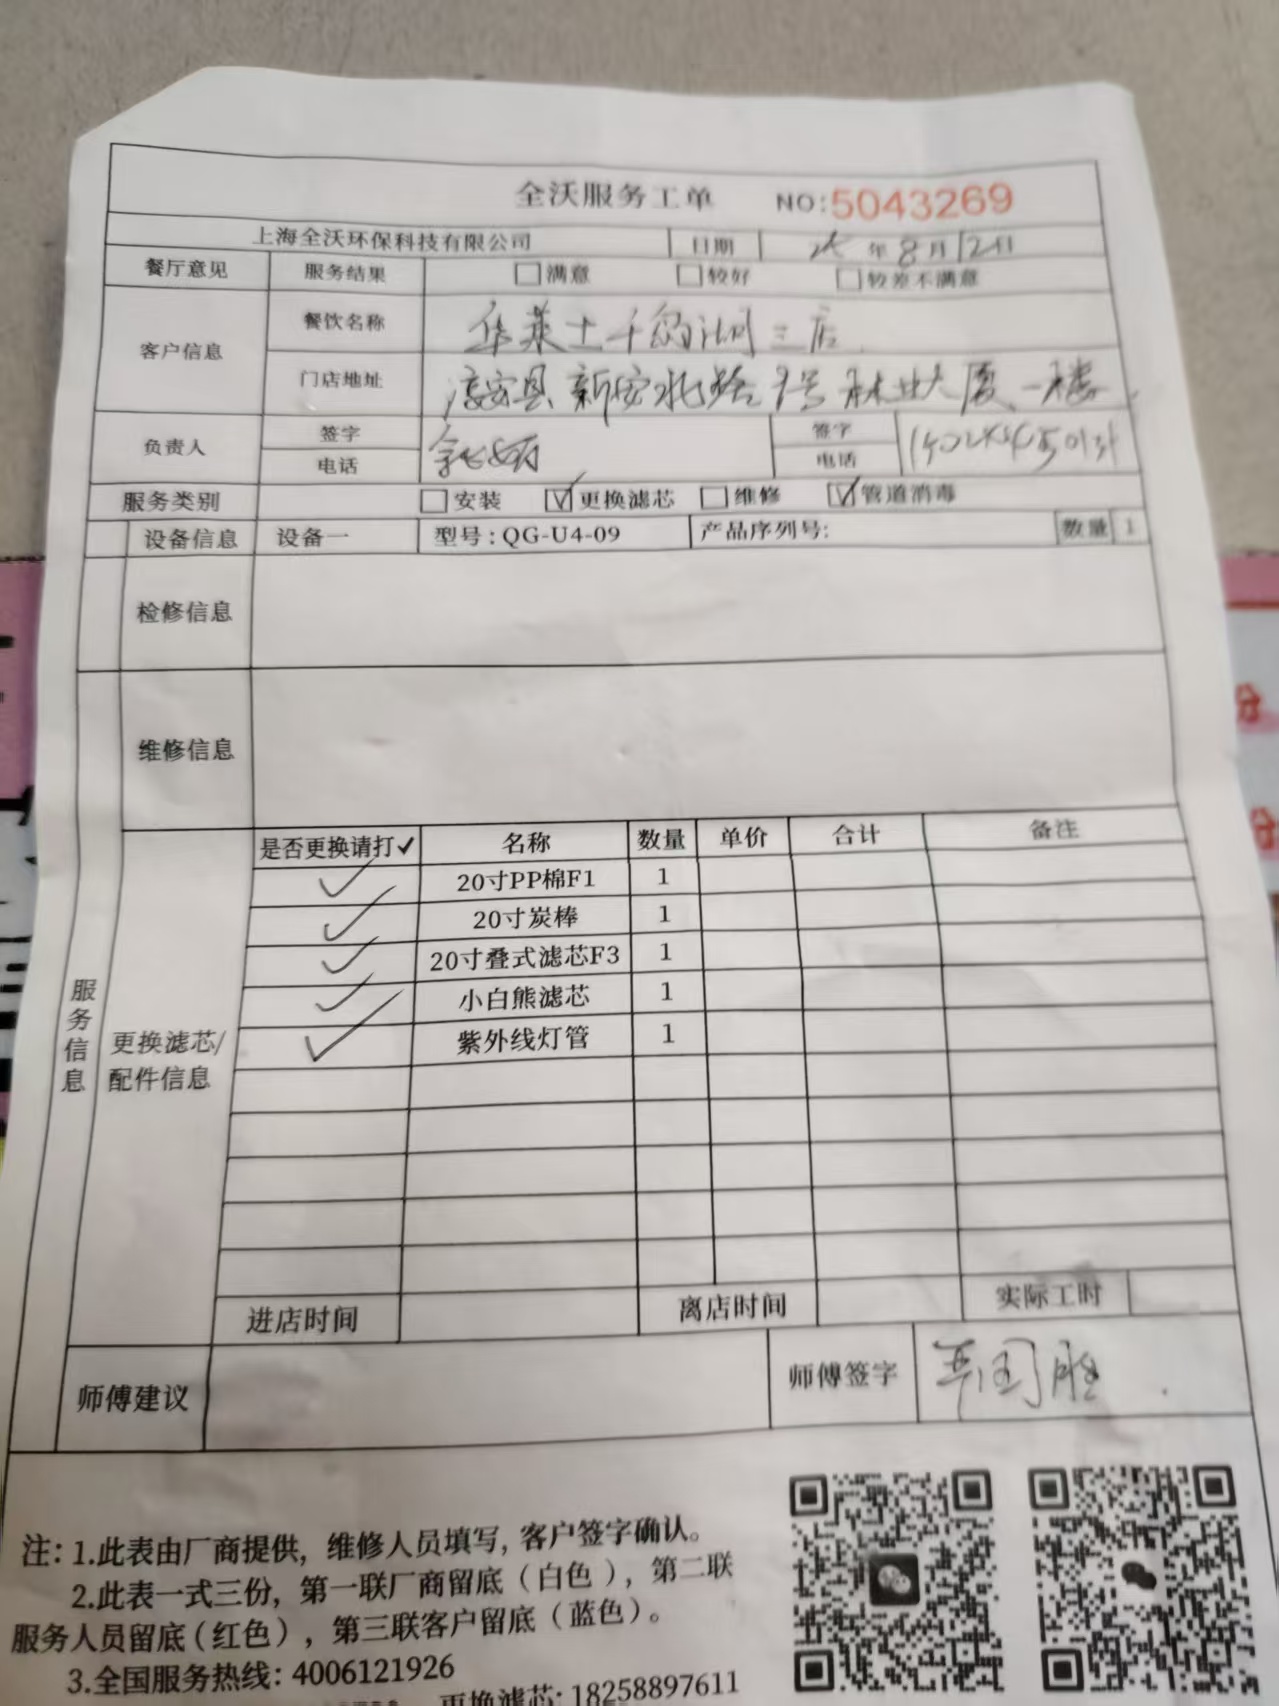 全沃服务工单 NO:5043269
上海全沃环保科技有限公司 日期 25年8月12日
餐厅意见 服务结果 满意 较好 较差不满意
客户信息 餐饮名称 华莱士千岛湖三店
门店地址 淳安县新安北路9号林业大厦一楼
负责人 签字 签字
电话 电话
服务类别 安装 ✓更换滤芯 维修 ✓管道消毒
设备信息 设备一 型号:QG-U4-09 产品序列号: 数量 1
检修信息
维修信息
服务信息
更换滤芯/配件信息
是否更换请打✓ 名称 数量 单价 合计 备注
✓ 20寸PP棉F1 1
✓ 20寸炭棒 1
✓ 20寸叠式滤芯F3 1
✓ 小白熊滤芯 1
✓ 紫外线灯管 1
进店时间 离店时间 实际工时
师傅建议 师傅签字
注:1.此表由厂商提供,维修人员填写,客户签字确认。
2.此表一式三份,第一联厂商留底(白色),第二联
服务人员留底(红色),第三联客户留底(蓝色)。
3.全国服务热线:4006121926
更换滤芯:18258897611